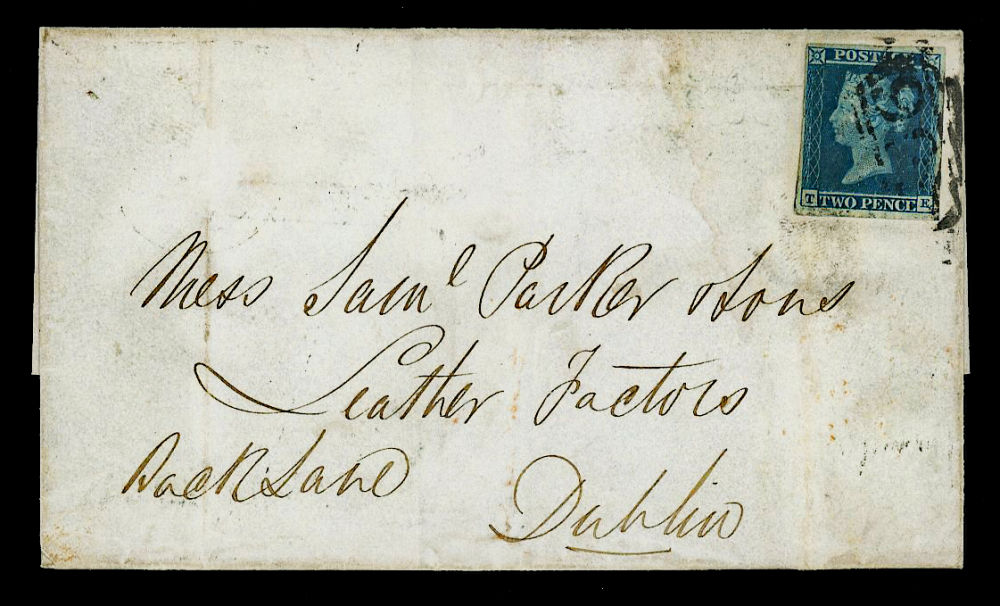 POSTAGE
T TWO PENCE E
Mess Saml Parker & Sons
Leather Factors
Back Lane
Dublin